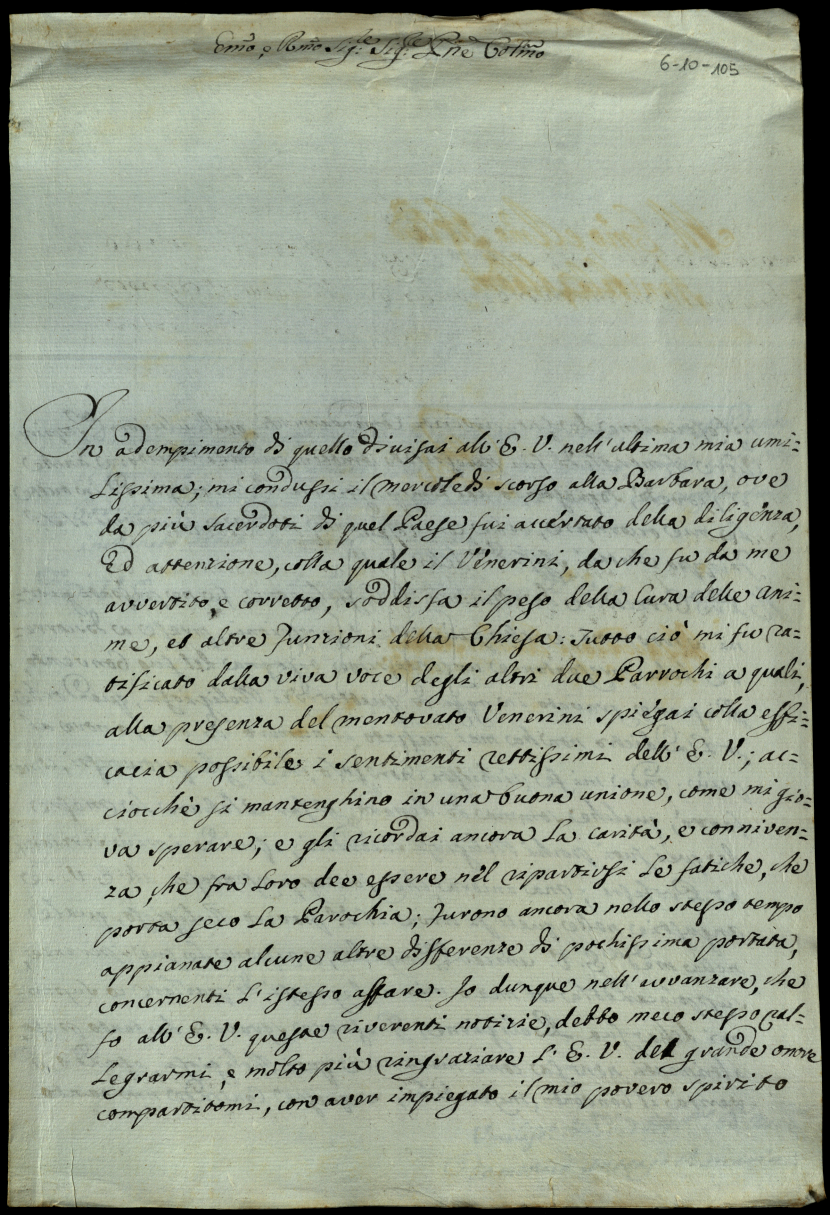 Emo, e Rmo Sig.re Sig.re Pne Colmo
6-10-105
In adempimento di quello divisai all' E. V. nell' ultima mia umi=
lissima; mi condussi il mercoledì scorso alla Barbara, ove
da più sacerdoti di quel Paese fui accertato della diligenza,
ed attenzione, colla quale il Venerini, da che fu da me
avvertito, e corretto, soddisfa il peso della Cura delle ani=
me, et altre funzioni della Chiesa: Tutto ciò mi fu ra=
tificato dalla viva voce degli altri due Parrochi a quali,
alla presenza del mentovato Venerini spiegai colla effi=
cacia possibile i sentimenti rettissimi dell' E. V.; ac=
ciocchè si mantenghino in una buona unione, come mi gio=
va sperare; e gli ricordai ancora la carità, e conniven=
za, che fra loro dee essere nel ripartirsi le fatiche, che
porta seco la Parochia; furono ancora nello stesso tempo
appianate alcune altre differenze di pochissima portata,
concernenti l'istesso affare. Io dunque nell' avvanzare, che
fo all' E. V. queste riverenti notizie, debbo meco stesso ral=
legrarmi, e molto più ringraziare l' E. V. del grande onore
compartitomi, con aver impiegato il mio povero spirito